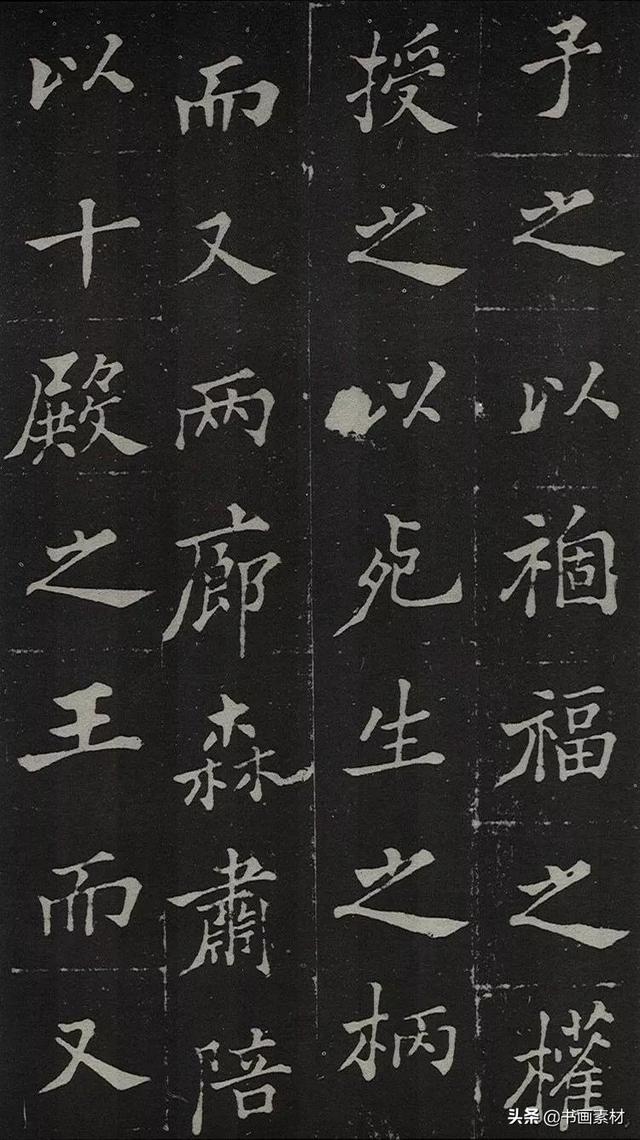 予之以禍福之權
授之以死生之柄
而又两廊森肅陪
以十殿之王而又
头条@书画素材